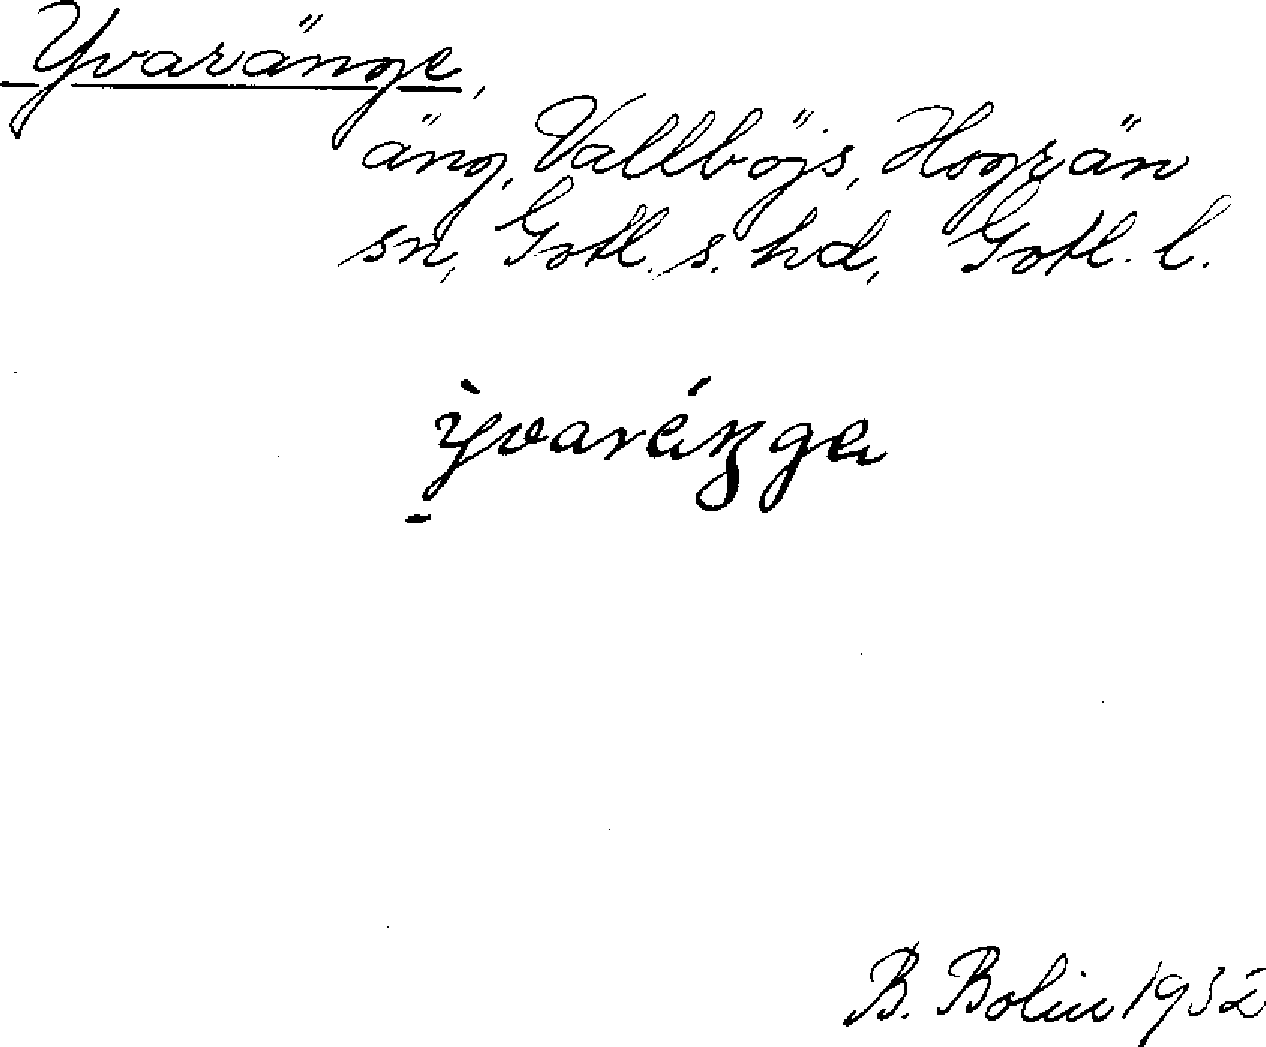 Yvaränge,
äng, Vallböjs, Hogrän
sn, Gotl. s. hd, Gotl. l.
B. Bolin 1932